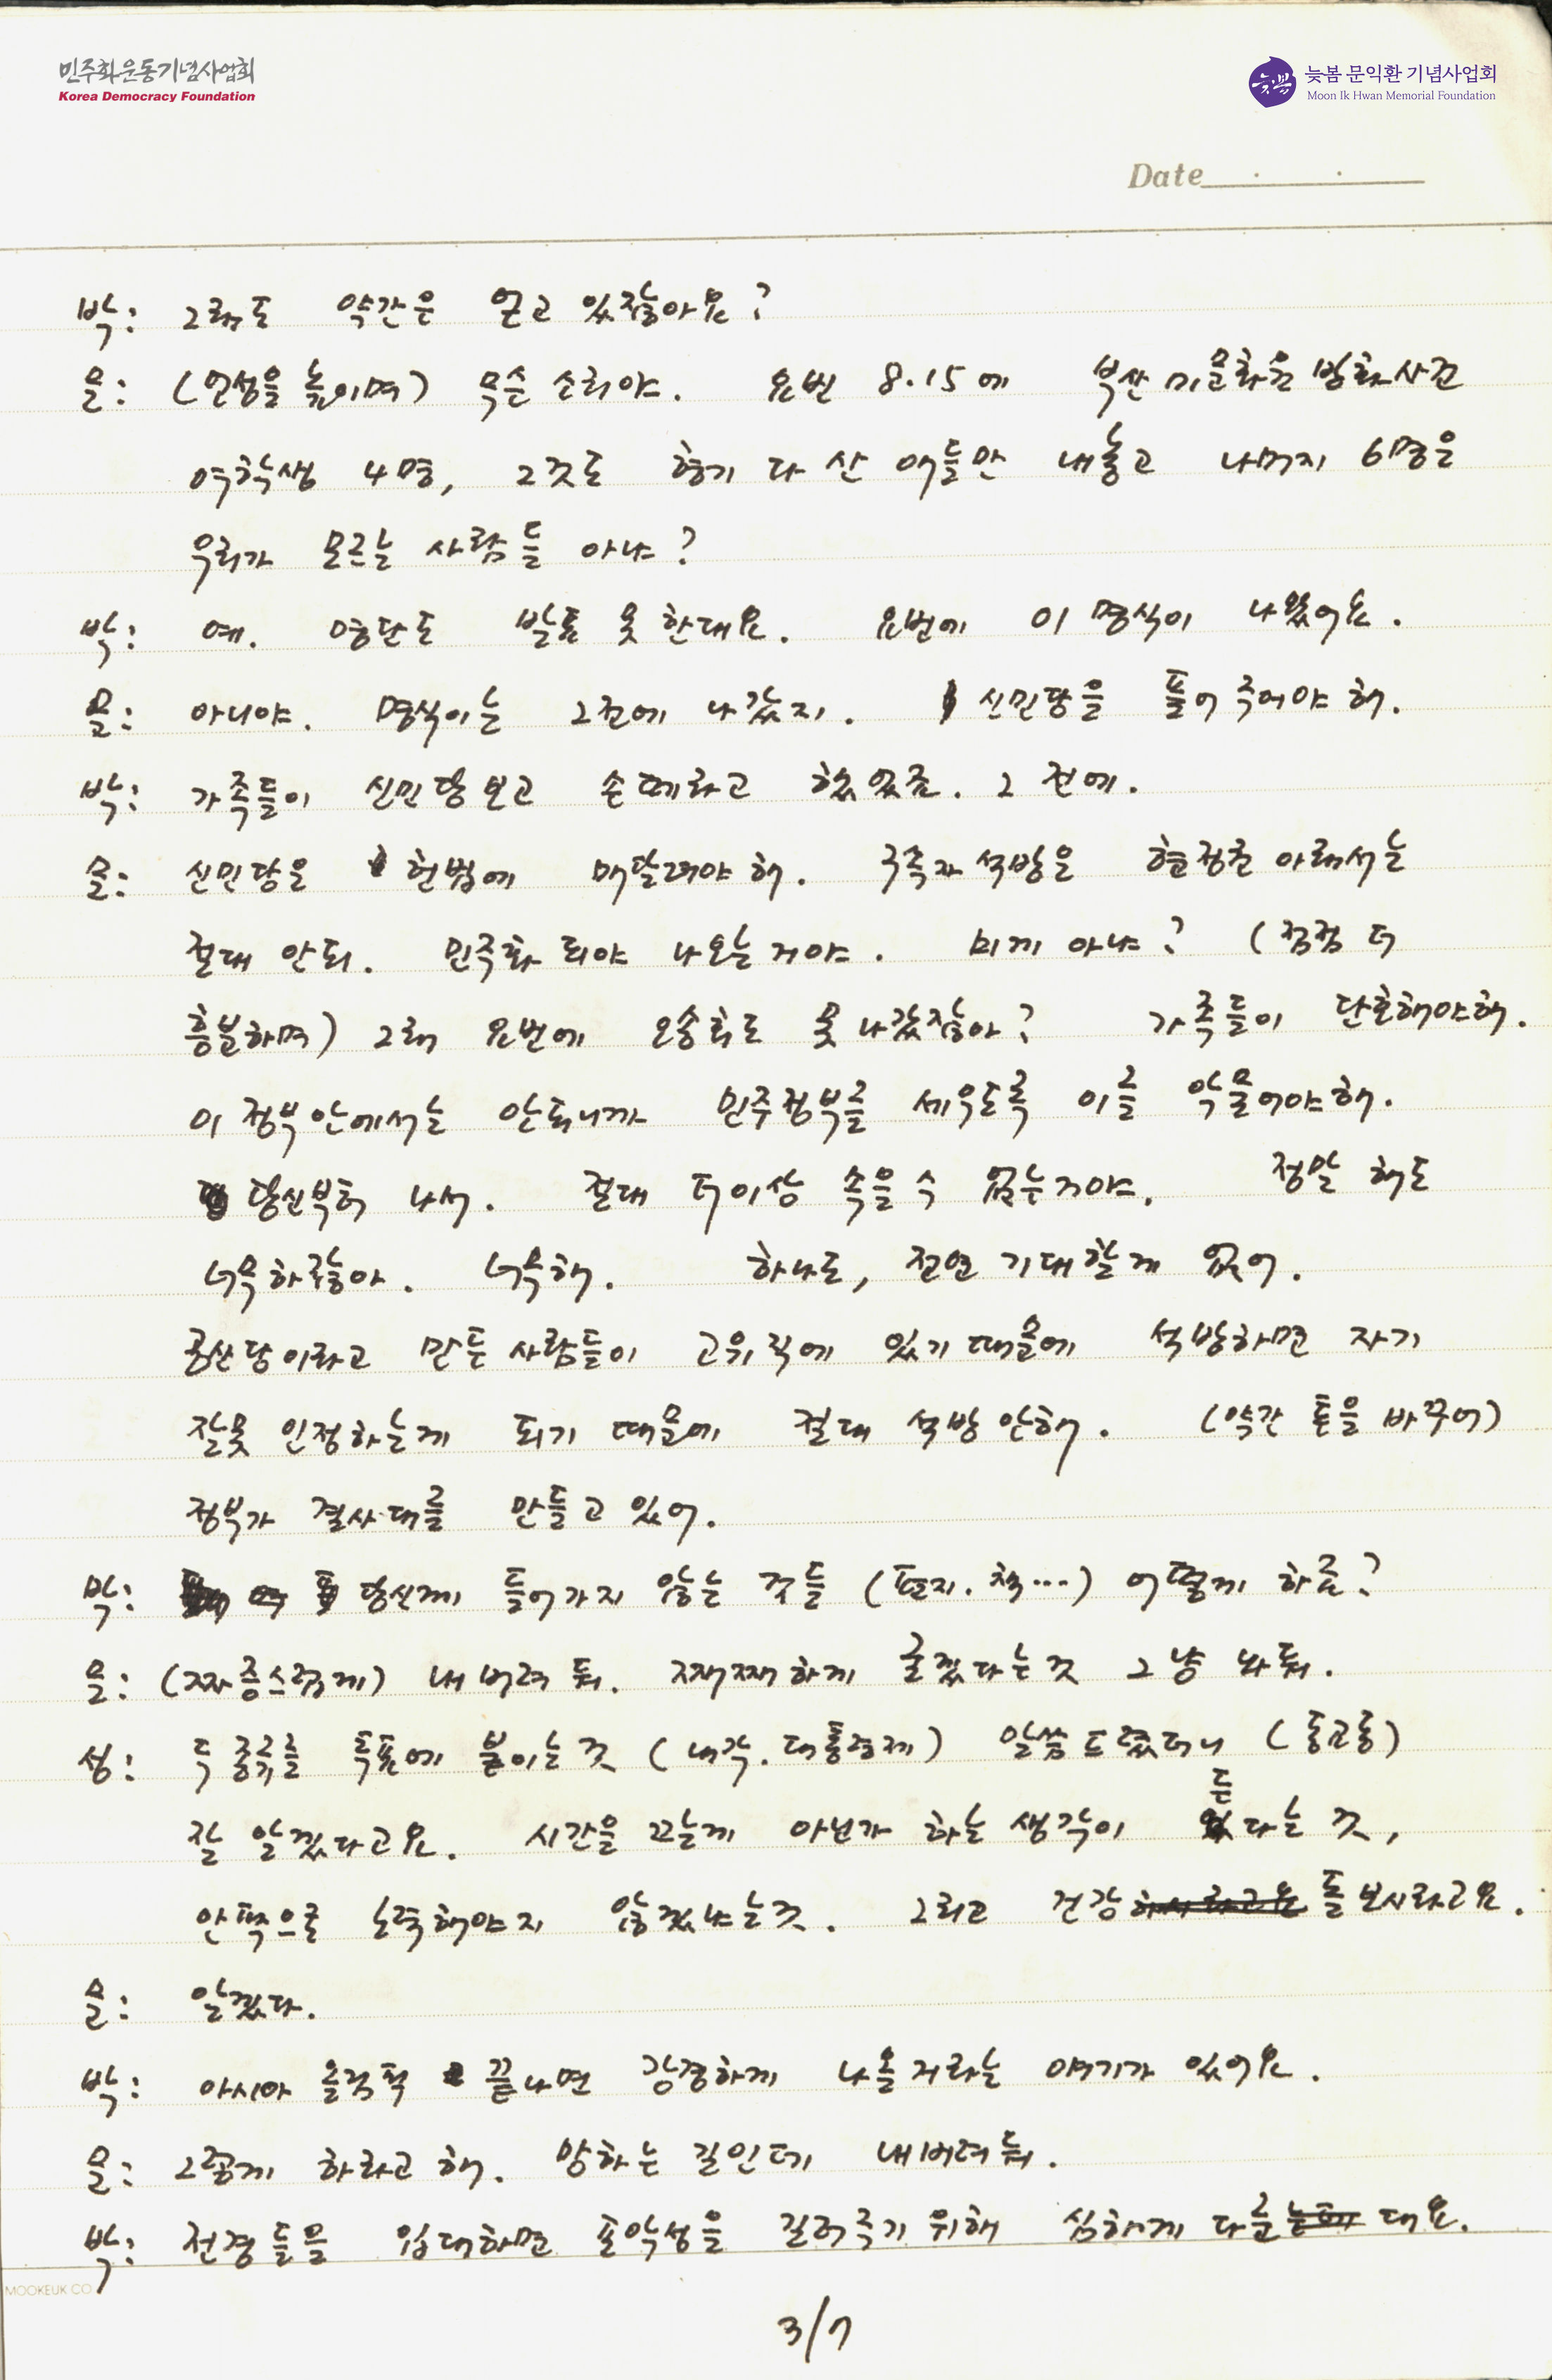 민주화운동기념사업회
Korea Democracy Foundation
늦봄
늦봄 문익환 기념사업회
Moon Ik Hwan Memorial Foundation
Date . .
박: 그래도 약간은 얻고 있잖아요?
문: (언성을 높이며) 무슨 소리야. 요번 8.15에 부산 미문화원 방화사건
여학생 4명, 그것도 형기 다 산 애들만 내놓고 나머지 6명은
우리가 모르는 사람들 아냐?
박: 예. 명단도 발표 못한대요. 요번에 이명식이 나왔어요.
문: 아니야. 명식이는 그전에 나갔지. 신민당을 풀어주어야 해.
박: 가족들이 신민당보고 손떼라고 했었죠. 그 전에.
문: 신민당은 헌법에 매달려야 해. 구속자 석방은 현정권 아래서는
절대 안되. 민주화 되야 나오는거야. 미끼 아냐? (점점 더
흥분하며) 그래 요번에 오송회도 못 나갔잖아? 가족들이 단호해야해.
이 정부 안에서는 안되니까 민주정부를 세우도록 이를 악물어야해.
당신부터 나서. 절대 더이상 속을 수 없는거야. 정말 해도
너무하잖아. 너무해. 하나도, 전연 기대할게 없어.
공산당이라고 만든 사람들이 고위직에 있기 때문에 석방하면 자기
잘못 인정하는게 되기 때문에 절대 석방 안해. (약간 톤을 바꾸어)
정부가 결사대를 만들고 있어.
박: 당신께 들어가지 않는 것들 (편지. 책...) 어떻게 하죠?
문: (짜증스럽게) 내버려 둬. 째째하게 굴겠다는것 그냥 놔둬.
성: 두 종류를 투표에 붙이는 것 (내각. 대통령제) 말씀드렸더니 (동교동)
잘 알겠다고요. 시간을 끄는게 아닌가 하는 생각이 든다는 것,
안팎으로 노력해야지 않겠냐는것. 그리고 건강 하시라고요 돌보시라고요.
문: 알겠다.
박: 아시아 올림픽 끝나면 강경하게 나올거라는 얘기가 있어요.
문: 그렇게 하라고 해. 망하는 길인데 내버려 둬.
박: 전경들을 입대하면 포악성을 길러주기 위해 심하게 다룬대요.
MOOKEUK CO
3/7